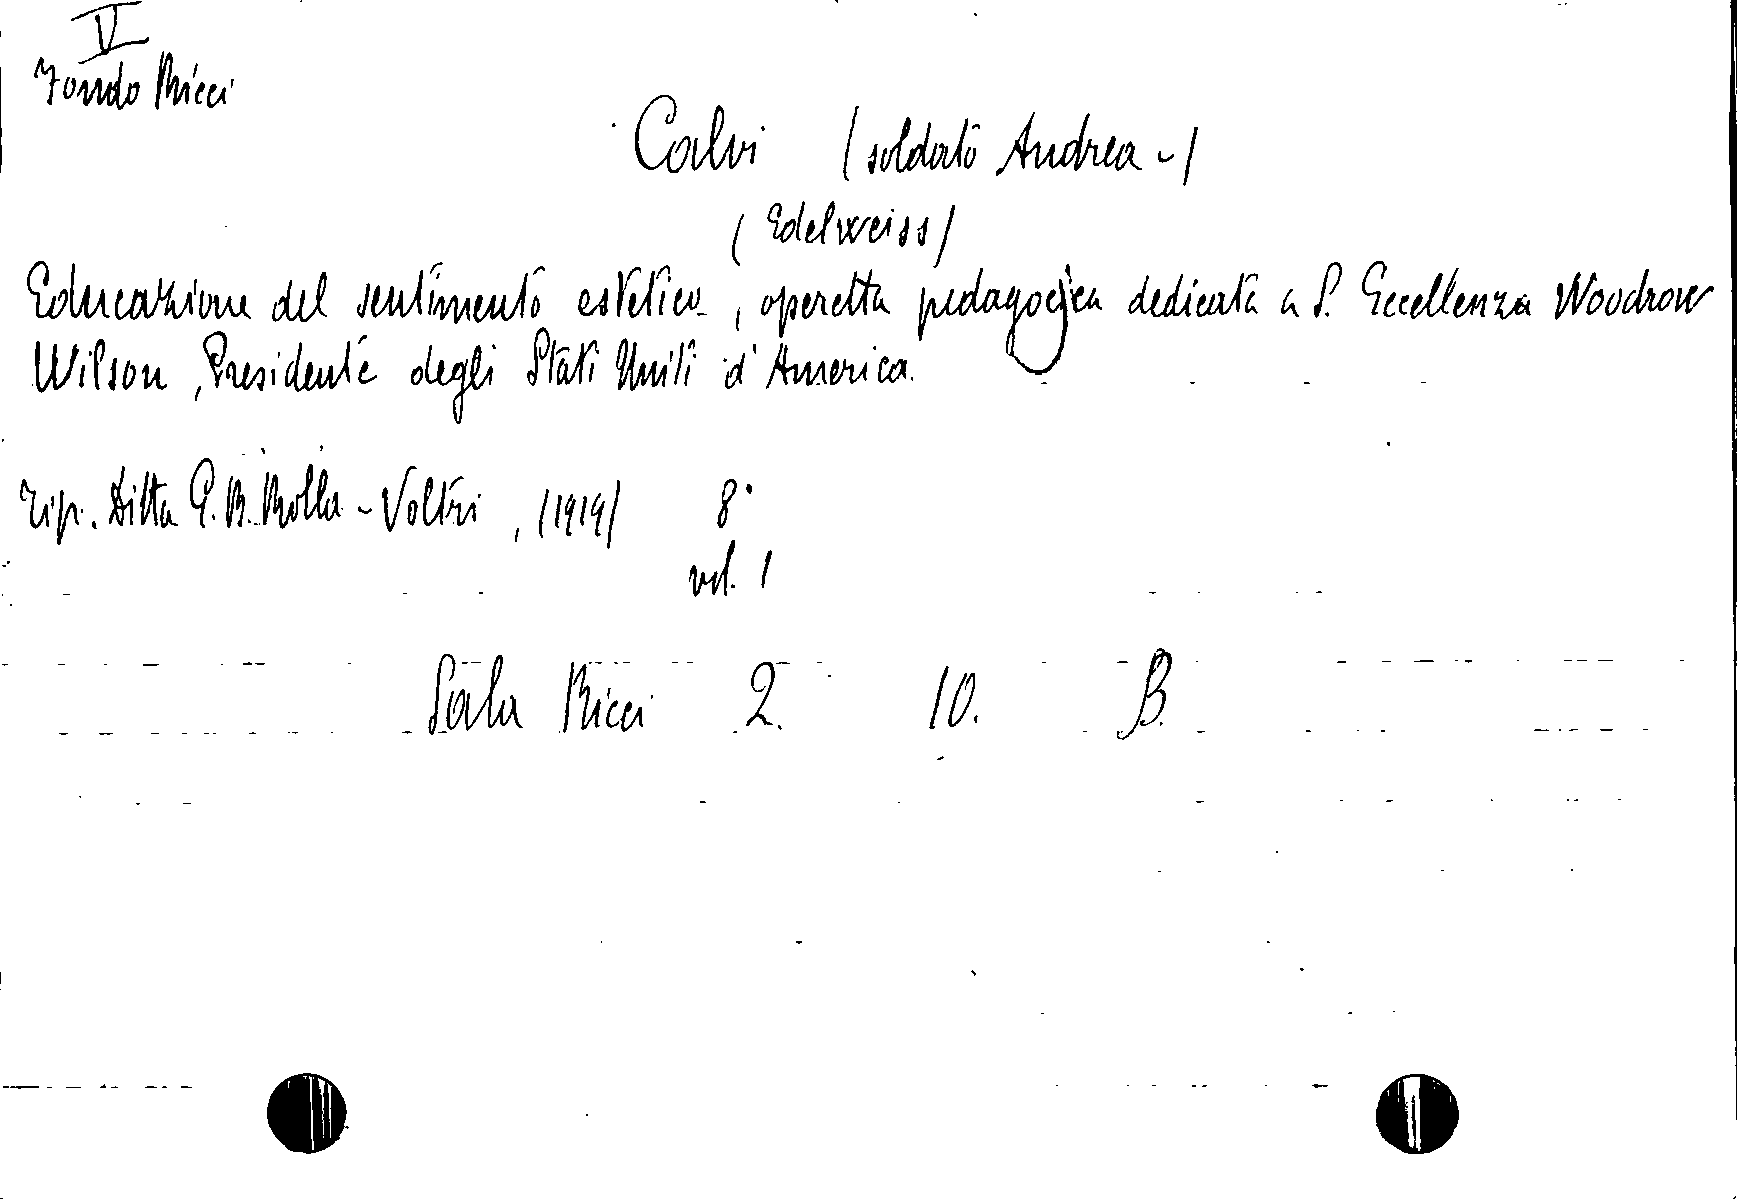 V
Fondo Ricci
Calvi (soldato Andrea -)
(Edelweiss)
Educazione del sentimento estetico, operetta pedagogica dedicata a S. Eccellenza Woodrow
Wilson, Presidente degli Stati Uniti d'America.
Tip. Ditta G. B. Rolla - Voltri, (1919) 8°
vol. 1
Sala Ricci 2. 10. B.